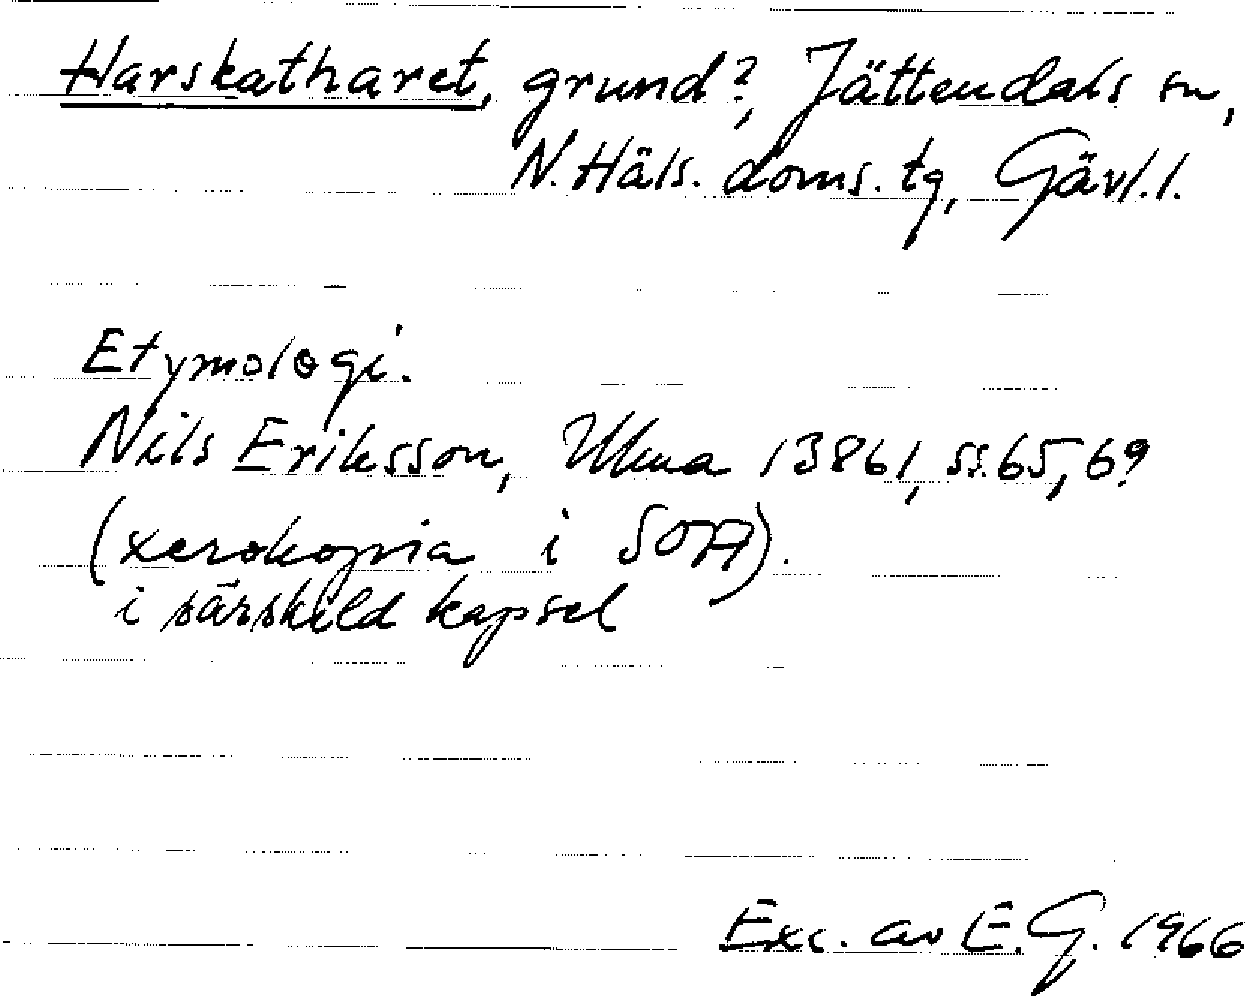 Harskatharet, grund?, Jättendals sn,
N. Häls. doms. tg, Gävl. l.
Etymologi.
Nils Eriksson, Ulma 13861, ss. 65, 69
(xerokopia i SOA).
i särskild kapsel
Exc. av E. G. 1966